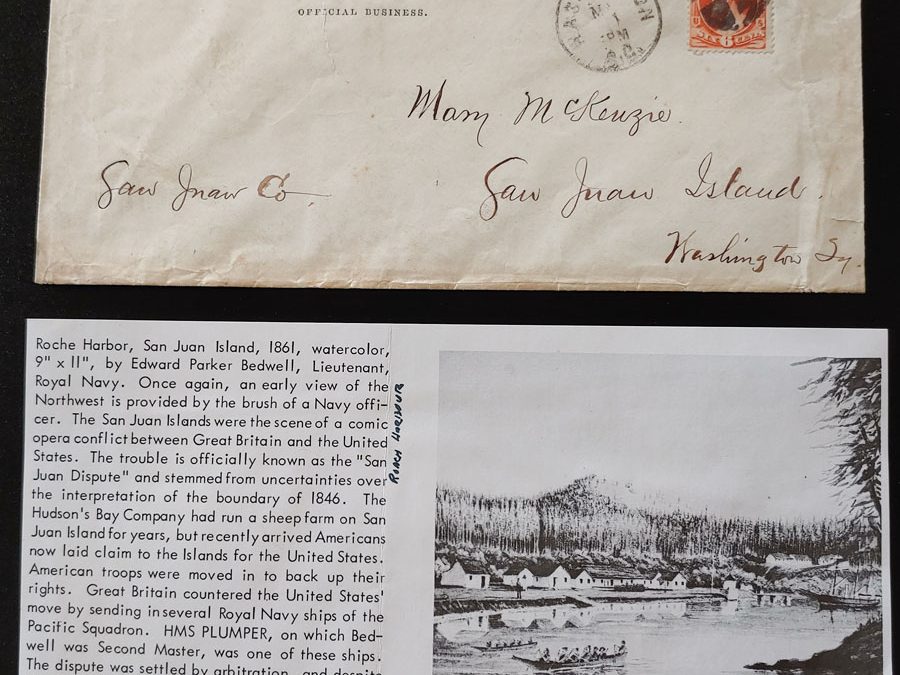 OFFICIAL BUSINESS.
PM
6
Mary McKenzie.
San Juan Co
San Juan Island.
Washington Ty.
Roche Harbor, San Juan Island, 1861, watercolor,
9" x 11", by Edward Parker Bedwell, Lieutenant,
Royal Navy. Once again, an early view of the
Northwest is provided by the brush of a Navy offi-
cer. The San Juan Islands were the scene of a comic
opera conflict between Great Britain and the United
States. The trouble is officially known as the "San
Juan Dispute" and stemmed from uncertainties over
the interpretation of the boundary of 1846. The
Hudson's Bay Company had run a sheep farm on San
Juan Island for years, but recently arrived Americans
now laid claim to the Islands for the United States.
American troops were moved in to back up their
rights. Great Britain countered the United States'
move by sending in several Royal Navy ships of the
Pacific Squadron. HMS PLUMPER, on which Bed-
well was Second Master, was one of these ships.
The dispute was settled by arbitration, and despite
HARBOUR